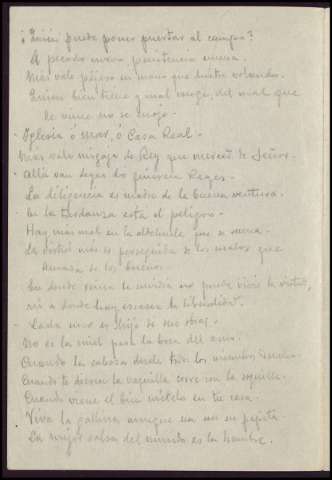 ¿Quién puede poner puertas al campo?
A pecado nuevo, penitencia nueva.
Más vale pájaro en mano que buitre volando.
Quien bien tiene y mal escoge, del mal que
le viene no se enoje.
Iglesia ó mar, ó Casa Real.
Más vale migaja de Rey que merced de Señor.
- Allá van leyes do quieren Reyes.
- La diligencia es madre de la buena ventura.
- En la tardanza está el peligro.
- Hay más mal en la aldehuela que se suena.
- La virtud más es perseguida de los malos que
amada de los buenos.
- En donde reina la envidia no puede vivir la virtud,
ni a donde hay escasez la liberalidad.
- Cada uno es hijo de sus obras.
No es la miel para la boca del asno.
Cuando la cabeza duele todos los miembros duelen.
Cuando te dieren la vaquilla corre con la soguilla.
Cuando viene el bien mételo en tu casa.
- Viva la gallina aunque sea con su pepita.
- La mejor salsa del mundo es la hambre.